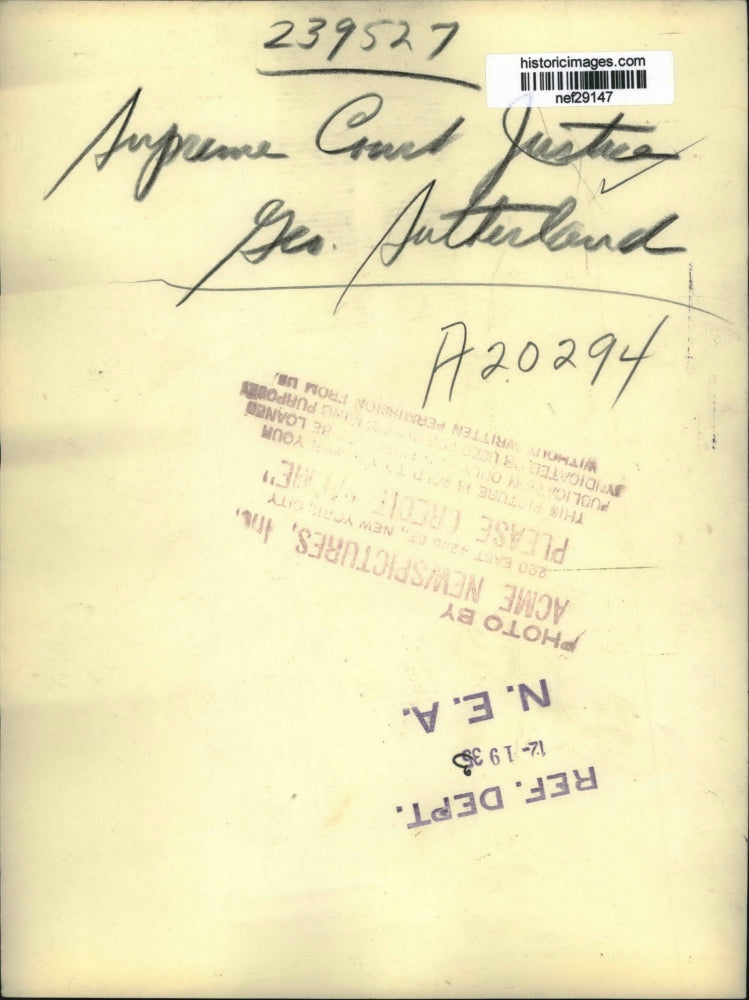 239527
historicimages.com
nef29147
Supreme Court Justice
Geo. Sutherland
A20294
REF. DEPT.
12-19 3
N. E. A.
PHOTO BY
ACME NEWSPICTURES, Inc.
220 EAST 42ND ST., NEW YORK CITY
PLEASE CREDIT "ACME"
THIS PICTURE IS SOLD TO YOU FOR YOUR
PUBLICATION ONLY BE LOANED
SYNDICATED OR USED FOR PURPOSES
WITHOUT WRITTEN PERMISSION FROM US.